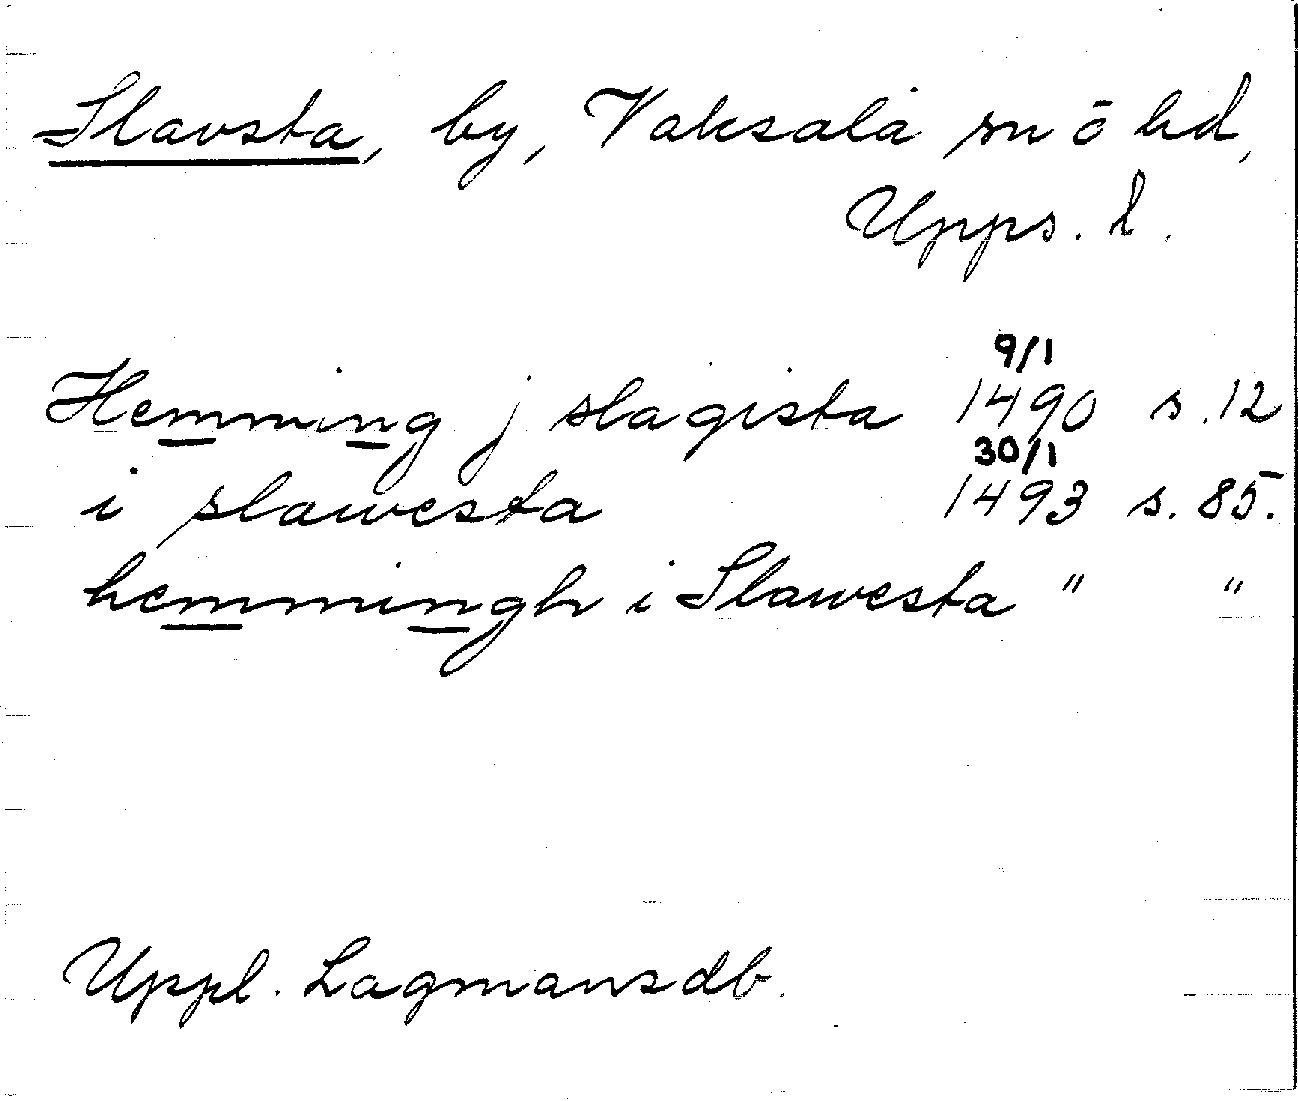 Slavsta, by, Vaksala sn ō hd,
Upps. l.
9/1
Hemming j slagista 1490 s. 12
30/1
i slawesta 1493 s. 85.
hemmingh i Slawesta " "
Uppl. Lagmansdb.